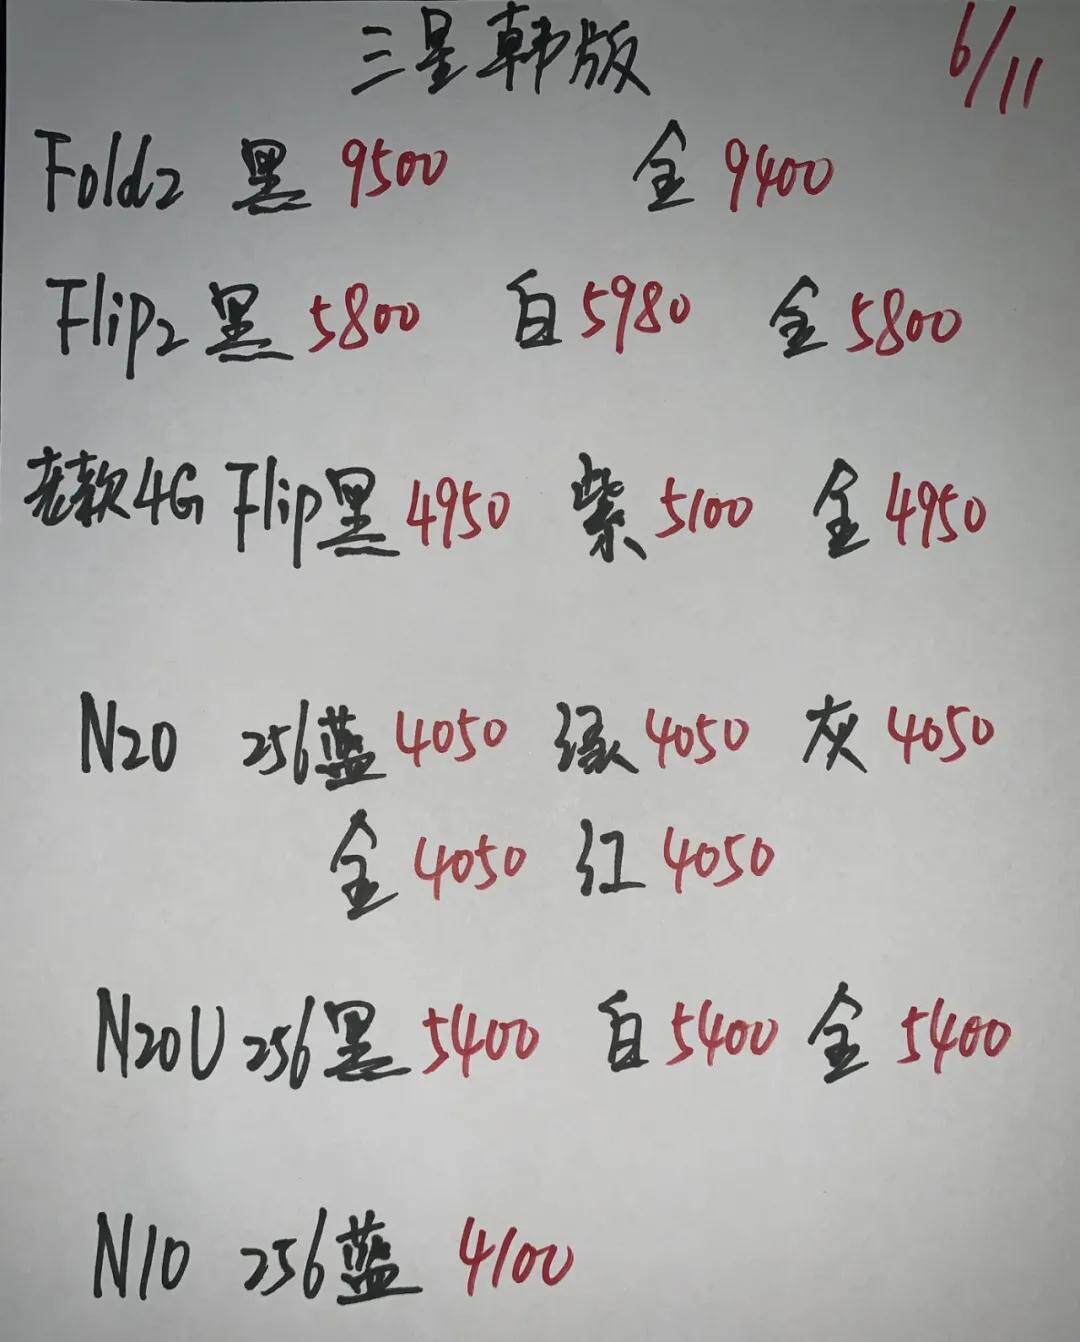 三星韩版 6/11
Fold2 黑 9500 金 9400
Flip2 黑 5800 白 5980 金 5800
老款4G Flip黑 4950 紫 5100 金 4950
N20 256蓝 4050 绿 4050 灰 4050
金 4050 红 4050
N20U 256黑 5400 白 5400 金 5400
N10 256蓝 4100